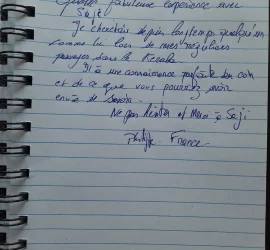 Quelle fabuleuse expérience avec
Saji
Je cherchais depuis longtemps quelqu'un
comme lui lors de mes régulières
passages dans le Kerala
Il a une connaissance parfaite du coin
et de ce que vous pouvez avoir
envie de
Ne pas hésiter et Merci à Saji
Philippe France